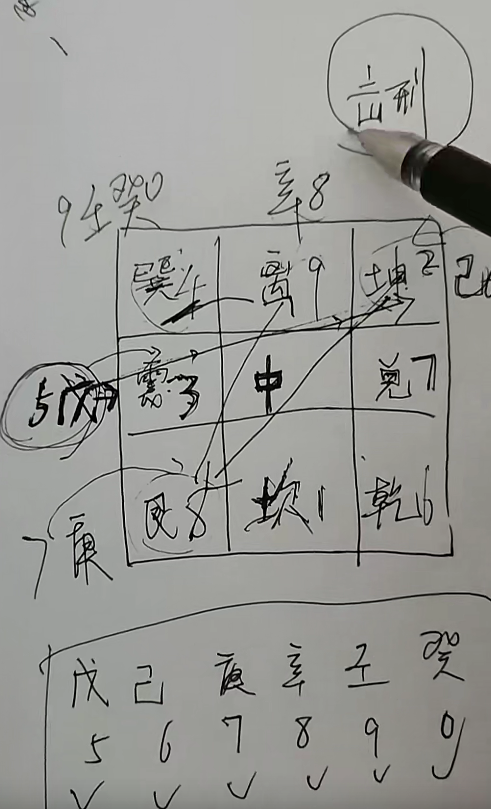 六
击刑
9壬癸0
辛8
巽4 离9 坤2
己
5戊
震3 中 兑7
艮8 坎1 乾6
7庚
戊 己 庚 辛 壬 癸
5 6 7 8 9 0